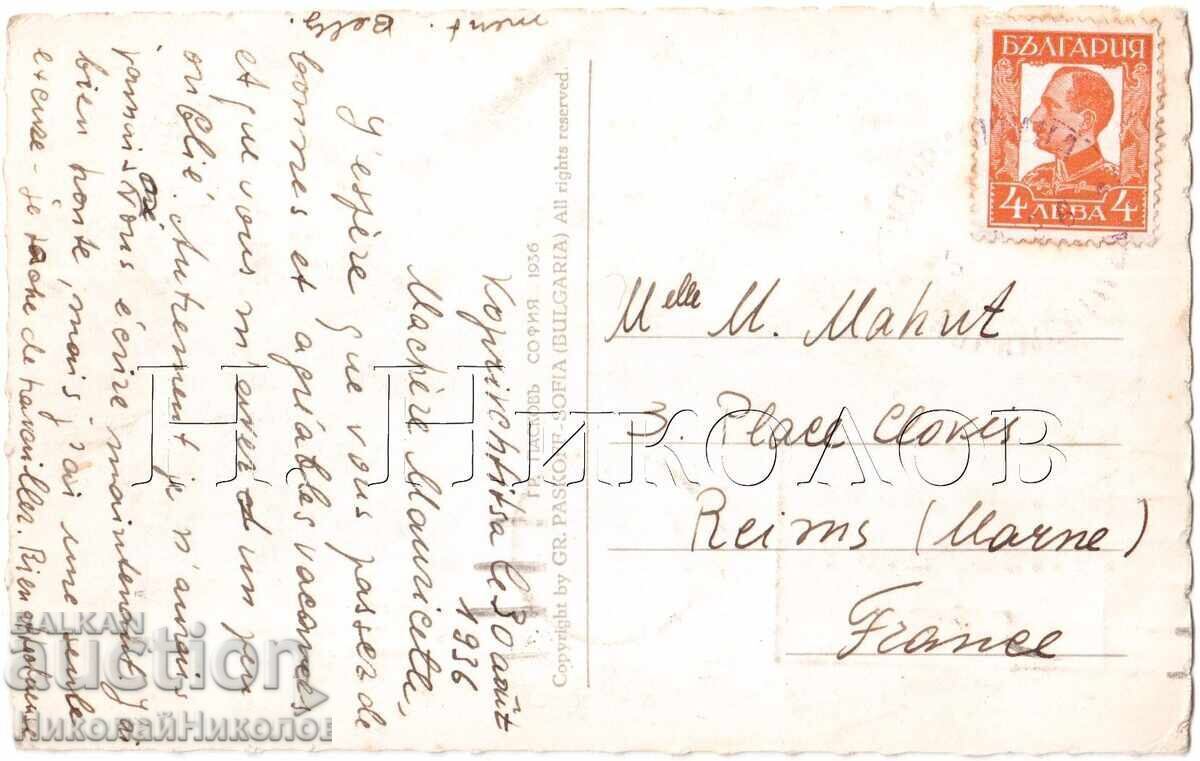 Koprivchtitsa le 30 août
1936
Ma chère Mauricette,
J'espère que vous passez de
bonnes et agréables vacances
et que vous m'avez un peu
oublié. Autrement je n'aurais
jamais osé vous écrire maintenant. J'ai
bien honte, mais j'ai une seule
excuse - je tache de travailler. Rien
ment.
БЪЛГАРИЯ
4 ЛЕВА 4
Melle M. Mahut
3. Place Clovis
Reims (Marne)
France
ГР. ПАСКОВЪ СОФИЯ 1936
Copyright by GR. PASKOFF-SOFIA (BULGARIA) All rights reserved.
Н. НИКОЛОВ
BALKAN
auction
НиколайНиколов